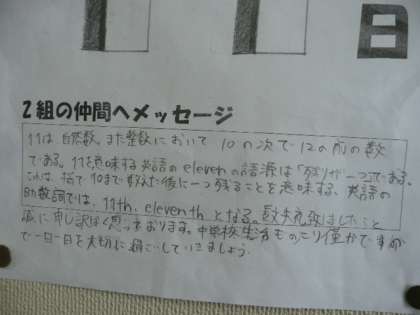 11日
2組の仲間へメッセージ
11は自然数、また整数において10の次で12の前の数
である。11を意味する英語のelevenの語源は「残りが一つ」である。
これは、指で10まで数えた後に一つ残ることを意味する。英語の
助数詞では、11th、eleventhとなる。数ネ元弥はしたこと
誠に申し訳なく思っております。中学校生活ものこり僅かです
で一日一日を大切に過ごしていきましょう。